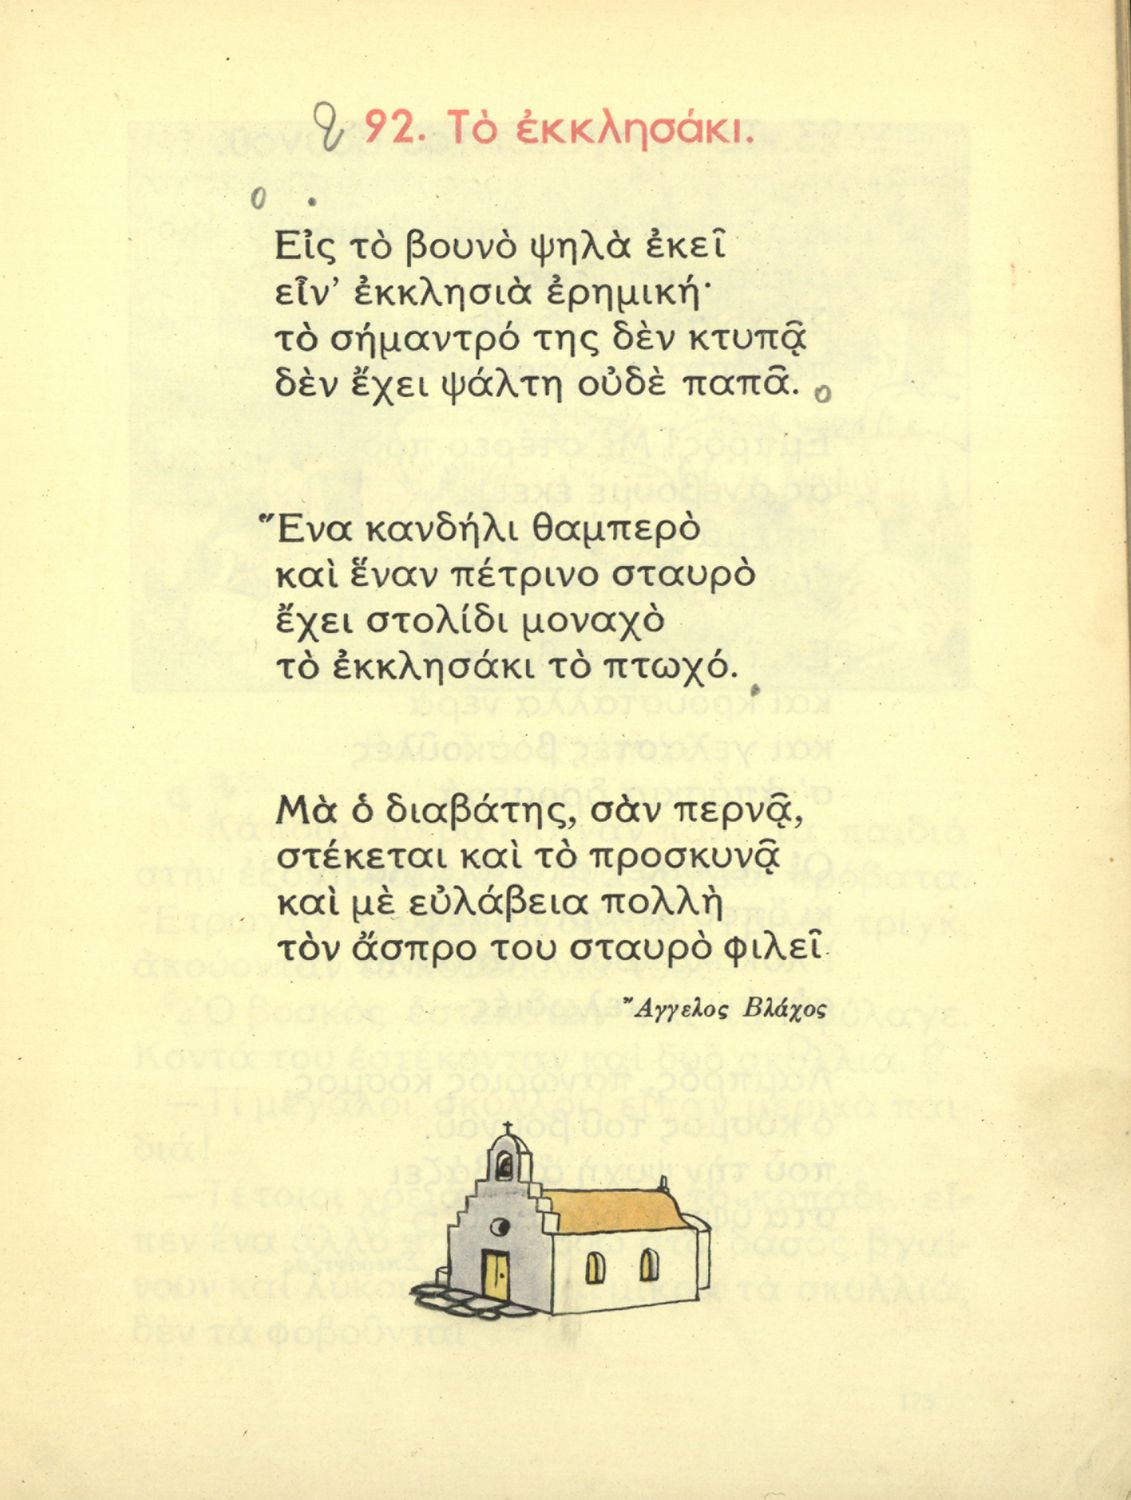 92. Τὸ ἐκκλησάκι.
Εἰς τὸ βουνὸ ψηλὰ ἐκεῖ
εἶν’ ἐκκλησιὰ ἐρημική·
τὸ σήμαντρό της δὲν κτυπᾷ
δὲν ἔχει ψάλτη οὐδὲ παπᾶ.
Ἕνα κανδήλι θαμπερὸ
καὶ ἕναν πέτρινο σταυρὸ
ἔχει στολίδι μοναχὸ
τὸ ἐκκλησάκι τὸ πτωχό.
Μὰ ὁ διαβάτης, σὰν περνᾷ,
στέκεται καὶ τὸ προσκυνᾷ
καὶ μὲ εὐλάβεια πολλὴ
τὸν ἄσπρο του σταυρὸ φιλεῖ.
Ἄγγελος Βλάχος